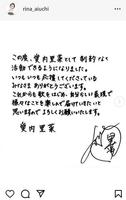 rina_aiuchi
この度、愛内里菜として制約なく
活動できるようになりました。
いつもいつも応援してくださっている
みなさまありがとうございます。
これからも歌をはじめ、自分らしい表現で
様々なことを楽しんで届けていきたいと
思いますのでよろしくお願いいたします。
愛内里菜